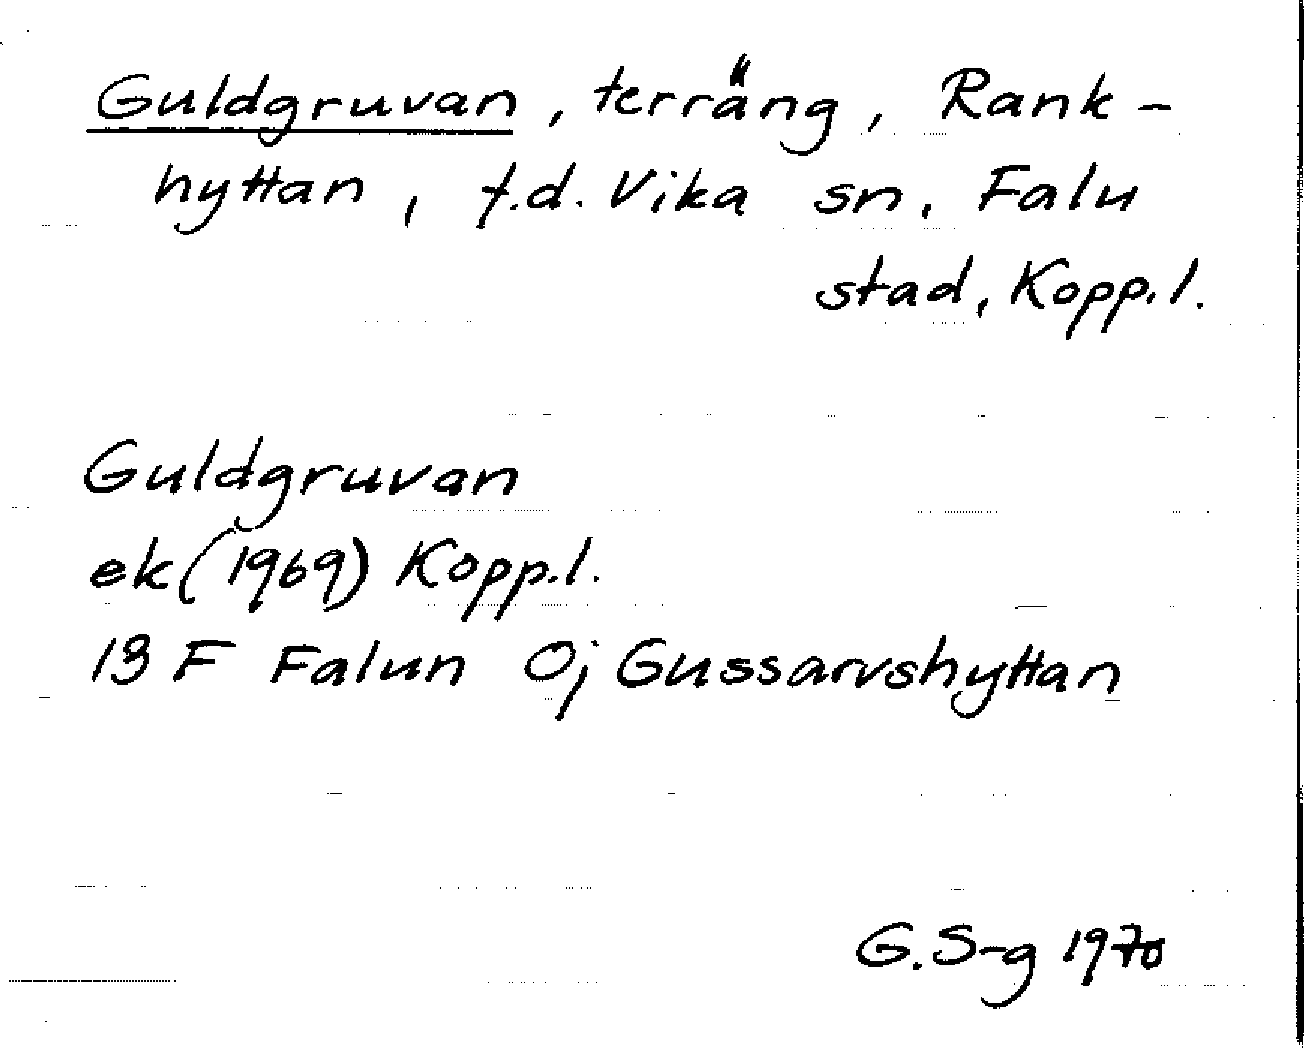 Guldgruvan, terräng, Rank-
hyttan, f.d. Vika sn, Falu
stad, Kopp.l.
Guldgruvan
ek (1969) Kopp.l.
13 F Falun 0j Gussarvshyttan
G. S-g 1970